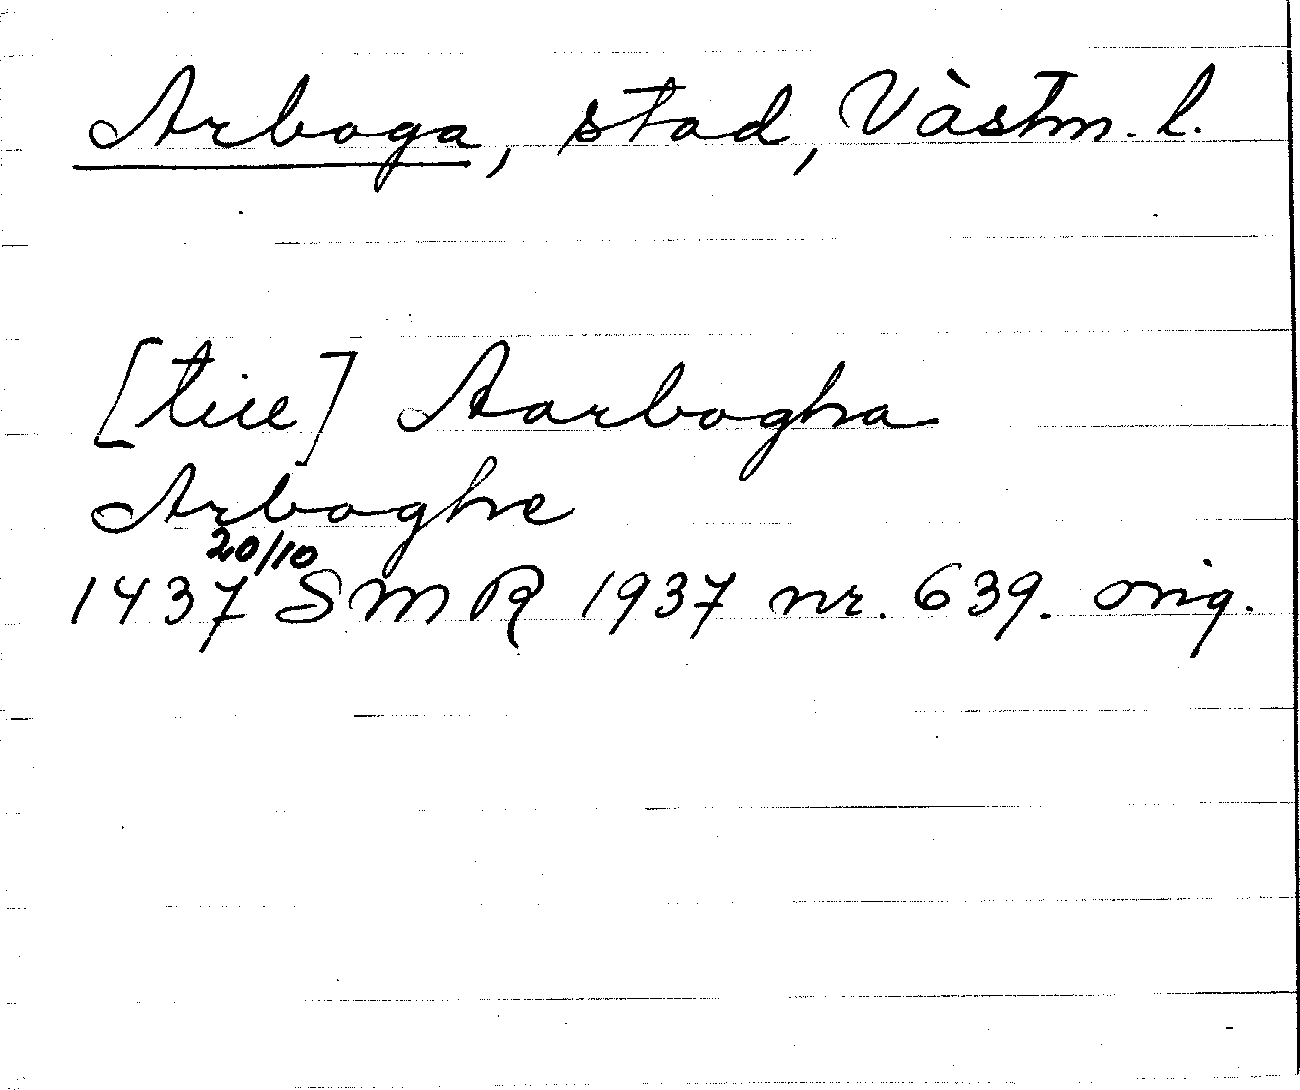 Arboga, stad, Västm. l.
[till] Aarbogha
Arboghe
20/10
1437 SMR 1937 nr. 639. orig.